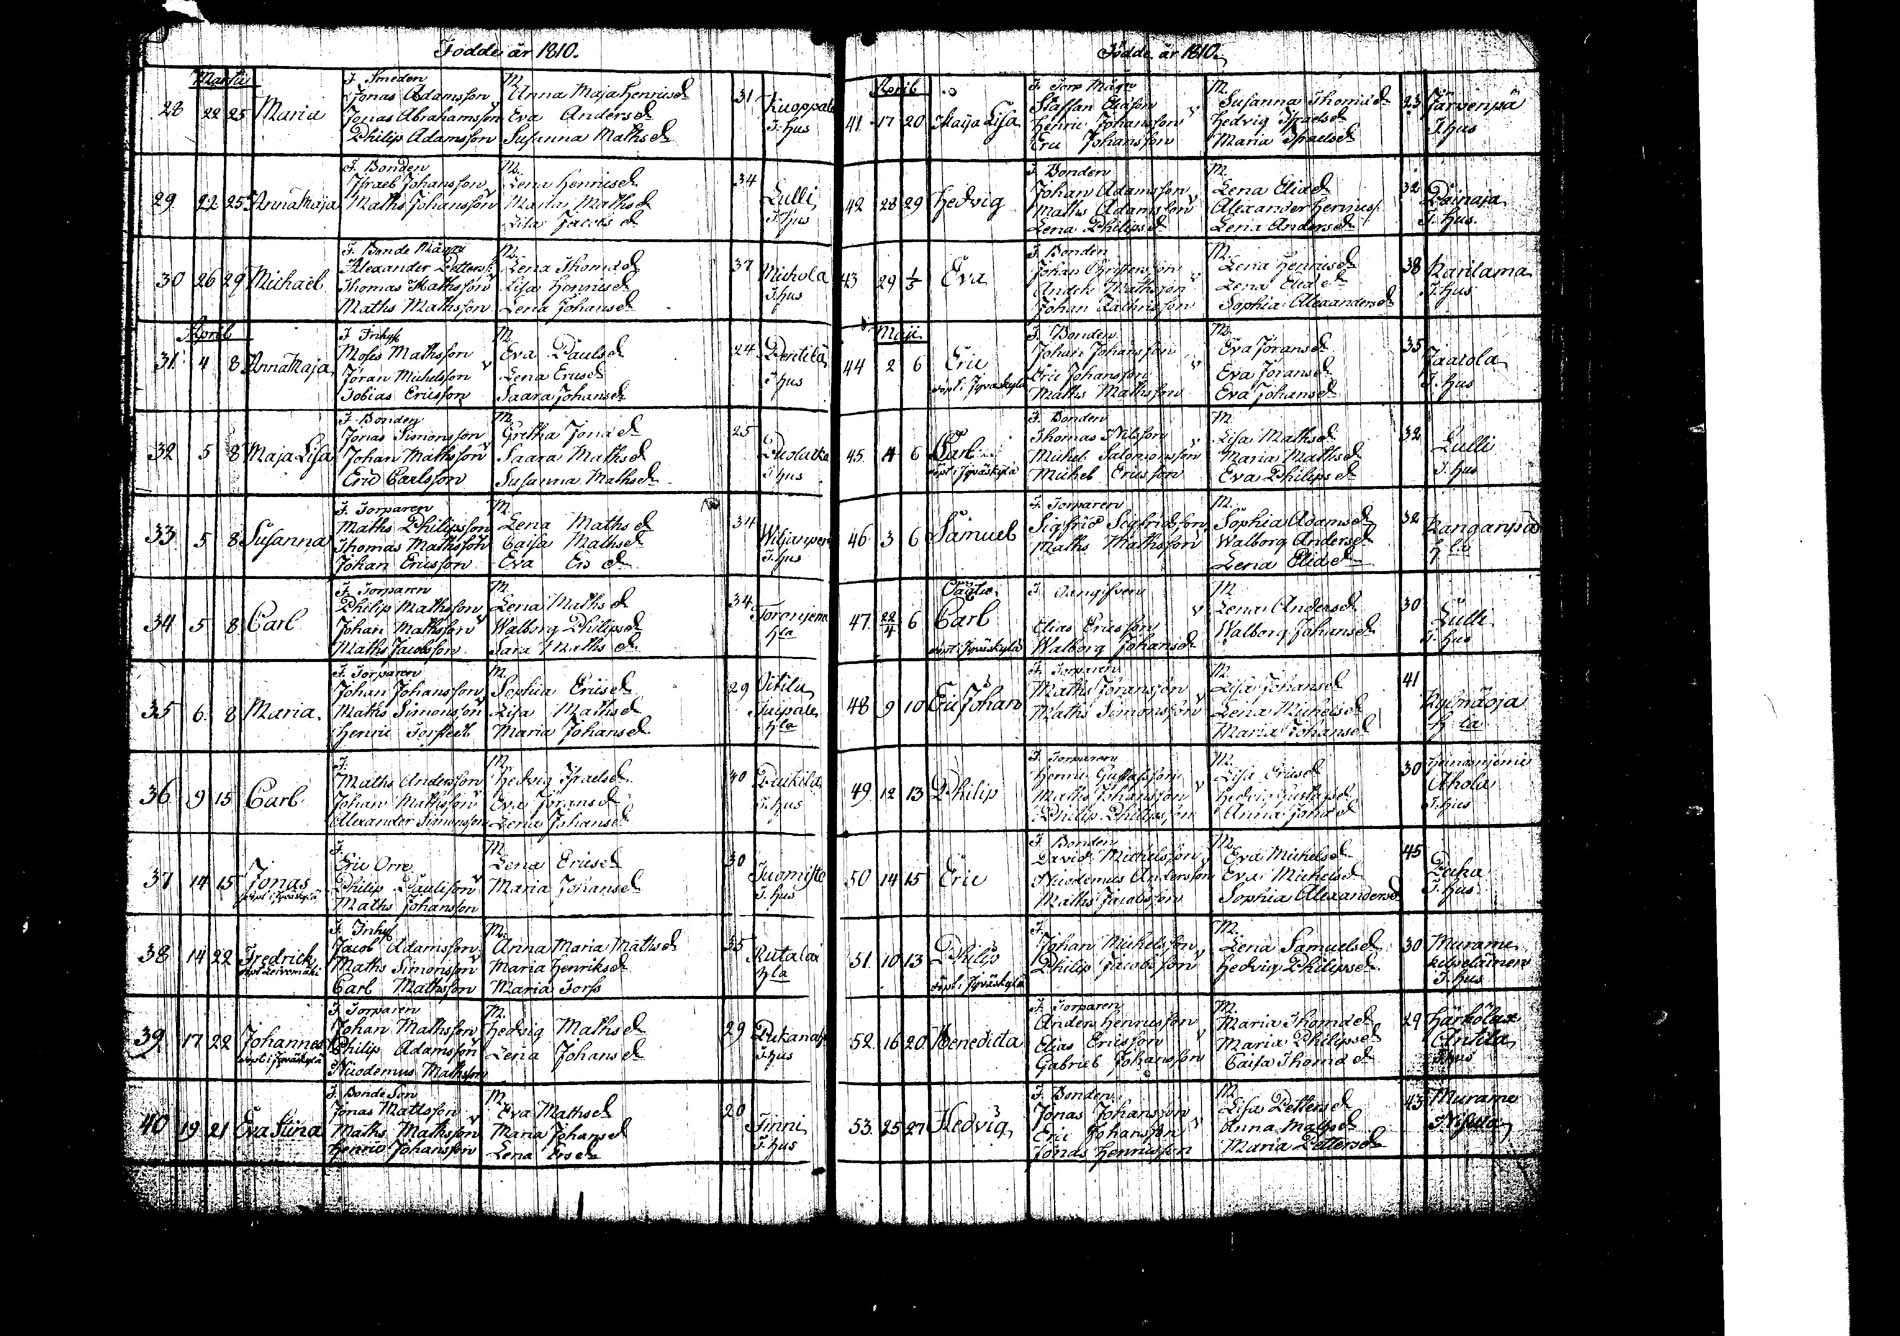 Födde år 1810.
Martii
28 22 25 Maria
F. Smeden M.
Jonas Adamsson Anna Maja Henricsd 31 Kuoppala
Jonas Abrahamsson Eva Andersd T. hus
Philip Adamsson Susanna Mathsd
29 22 25 Anna Maja
F. Bonden M.
Israel Johansson Lena Henricsd 34 Lulli
Maths Johansson Maria Mathsd T. hus
Lisa Jacobsd
30 26 29 Michael
F. Bonde Mågen M.
Alexander Petterss. Lena Thomæd 37 Michola
Thomas Mathsson Lisa Henricsd T. hus
Maths Mathsson Lena Johansd
April
31 4 8 Anna Maja
F. Inhys M.
Moses Mathsson Eva Paulsd 24 Penttilä
Jöran Michelsson Lena Ericsd T. hus
Tobias Ericsson Saara Johansd
32 5 8 Maja Lisa
F. Bonden M.
Jonas Simonsson Gretha Jonæd 25
Johan Mathsson Saara Mathsd T. hus
Eric Carlsson Susanna Mathsd
33 5 8 Susanna
F. Torparen M.
Maths Philipsson Lena Mathsd 34
Thomas Mathsson Caisa Mathsd T. hus
Johan Ericsson Eva Ersd
34 5 8 Carl
F. Torparen M.
Philip Mathsson Lena Mathsd 34
Johan Mathsson Walborg Philipsd K la
Maths Jacobsson Sara Mathsd
35 6 8 Maria
F. Torparen M.
Johan Johansson Sophia Ericsd 29
Maths Simonsson Lisa Mathsd
Henric Maria Johansd K la
36 9 15 Carl
F. M.
Maths Andersson Hedvig Israelsd 30 Paukila
Johan Mathsson Eva Jöransd T. hus
Alexander Simonsson Lena Johansd
37 14 15 Jonas
döpt i Jyväskylä
F. M.
Eric Orre Lena Ericsd 30 Tuomisto
Philip Paulsson Maria Johansd T. hus
Maths Johansson
38 14 22 Fredrick
F. Inhys M.
Jacob Adamsson Anna Maria Mathsd 35 Rutalax
Maths Simonsson Maria Henriksd K la
Carl Mathsson Maria Torss
39 17 22 Johannes
döpt i Jyväskylä
F. Torparen M.
Johan Mathsson Hedvig Mathsd 29
Philip Adamsson Lena Johansd T. hus
Nicodemus Mathsson
40 19 21 Eva Stina
F. Bonde Son M.
Jonas Mattsson Eva Mathsd 20 Tinni
Maths Mathsson Maria Johansd T. hus
Henric Johansson Lena Ersd
Födde år 1810.
April
41 17 20 Maija Lisa
F. Torp Mågen M.
Staffan Eliasson Susanna Thomæd 23 Järvenpä
Henric Johansson Hedvig Israelsd T. hus
Eric Johansson Maria Israelsd
42 28 29 Hedvig
F. Bonden M.
Johan Adamsson Lena Eliæd 32
Maths Adamsson Alexander Henricss. T. hus
Lena Philipsd Lena Andersd
43 29 1/5 Eva
F. Bonden M.
Johan Christersson Lena Henricsd 38 Karilama
Anders Mathsson Lena Eliæd T. hus
Johan Sophia Alexandersd
Maji
44 2 6 Eric
döpt i Jyväskylä
F. Bonden M.
Johan Johansson Eva Jöransd 35 Jaarola
Eric Johansson Eva Jöransd T. hus
Maths Mathsson Eva Johansd
45 4 6 Carl
döpt i Jyväskylä
F. Bonden M.
Thomas Nilsson Lisa Mathsd 32 Lulli
Michel Salomonsson Maria Mathsd T. hus
Michel Ericsson Eva Philipsd
46 3 6 Samuel
F. Torparen M.
Sigfrid Sigfridsson Sophia Adamsd 32 Kanganpää
Maths Mathsson Walborg Andersd K la
Lena Eliæd
47 22/4 6 Oägta Carl
döpt i Jyväskylä
F. M.
Lena Andersd 30 Lulli
Elias Ericsson Walborg Johansd T. hus
Walborg Johansd
48 9 10 Eric Johan
F. Torparen M.
Maths Jöransson Lisa Johansd 41
Maths Simonsson Lena Michelsd K la
Maria Johansd
49 12 13 Philip
F. Torparen M.
Henric Gustafsson Lisa Ericsd 30
Maths Johansson Hedvig Gustafsd Ahola
Philip Philipsson Anna Jonæd T. hus
50 14 15 Eric
F. Bonden M.
David Michelsson Eva Michelsd 45
Nicodemus Andersson Eva Michelsd T. hus
Maths Jacobsson Sophia Alexandersd
51 10 13 Philip
döpt i Jyväskylä
F. M.
Johan Michelsson Lena Samuelsd 30 Murame
Philip Jacobsson Hedvig Philipsd T. hus
52 16 20 Benedicta
F. Torparen M.
Anders Henricsson Maria Thomæd 29
Elias Ericsson Maria Philipsd Antila
Gabriel Johansson Caisa Thomæd T. hus
53 25 27 Hedvig
F. Bonden M.
Jonas Johansson Lisa Pettersd 43 Murame
Eric Johansson Anna Mathsd
Jonas Henricsson Maria Pettersd